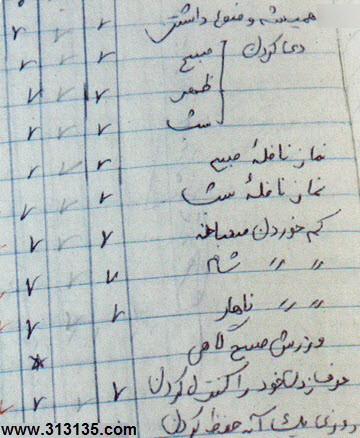 همیشه وضو داشتن
دعا کردن
صبح
ظهر
شب
نماز نافلهٔ صبح
نماز نافلهٔ شب
کم خوردن صبحانه
〃 〃 شام
〃 〃 ناهار
ورزش صبح گاهی
حرف زدن خود را کنترل کردن
روزی یک آیه حفظ کردن
www.313135.com